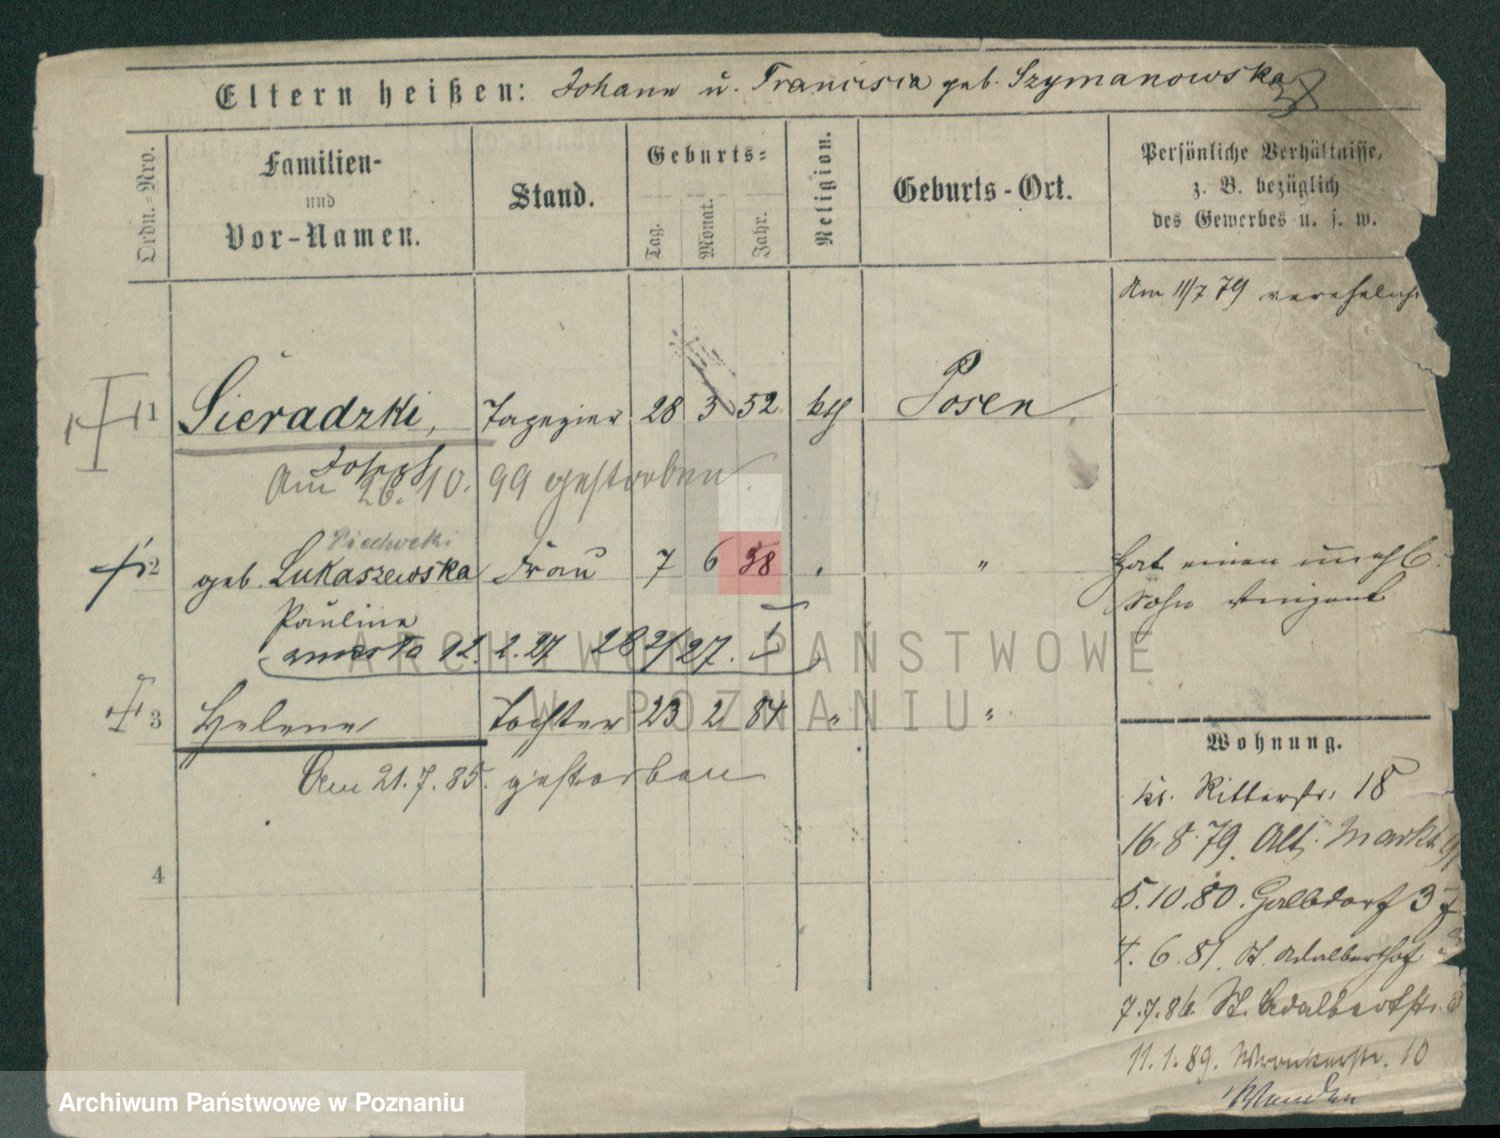 Eltern heißen: Johann u. Francisca geb. Szymanowska
Ordn.-Nro.
Familien-
und
Vor-Namen.
Stand.
Geburts-
Tag.
Monat.
Jahr.
Religion.
Geburts-Ort.
Persönliche Verhältnisse,
z. B. bezüglich
des Gewerbes u. s. w.
Am 11/7 79 verehelicht
1 Sieradzki, Tapezier 28 3 52 kth Posen
Joseph
Am 26. 10. 99 gestorben
2 geb. Lukaszewska Frau 7 6 58 " "
Pauline
zmarła 12. 2. 27 28 2/27.
Hat einen unehl.
Sohn
3 Helene Tochter 23 2 84 " "
Am 21. 7. 85. gestorben
4
Wohnung.
kl. Ritterstr. 18
16. 8. 79. Alt. Markt
5. 10. 80.
4. 6. 81. St. Adalberthof
7. 7. 86. St. Adalbertstr.
11. 1. 89. Wronkerstr. 10
ARCHIWUM PAŃSTWOWE
W POZNANIU
Archiwum Państwowe w Poznaniu